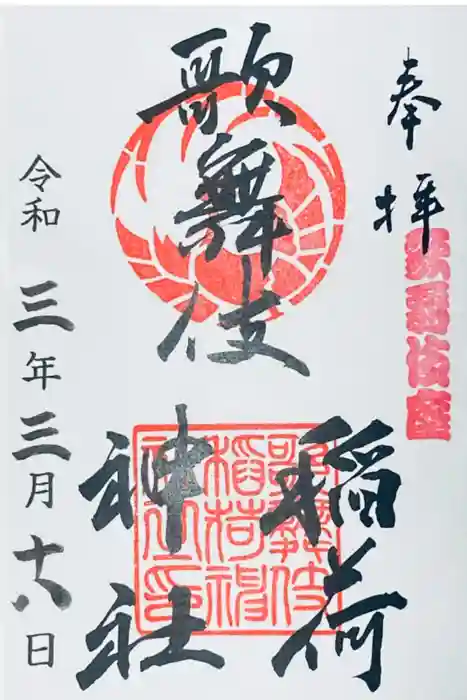 奉拝
歌舞伎座
歌舞伎
稲荷
神社
歌舞伎
稲荷神
社之印
令和三年三月十八日